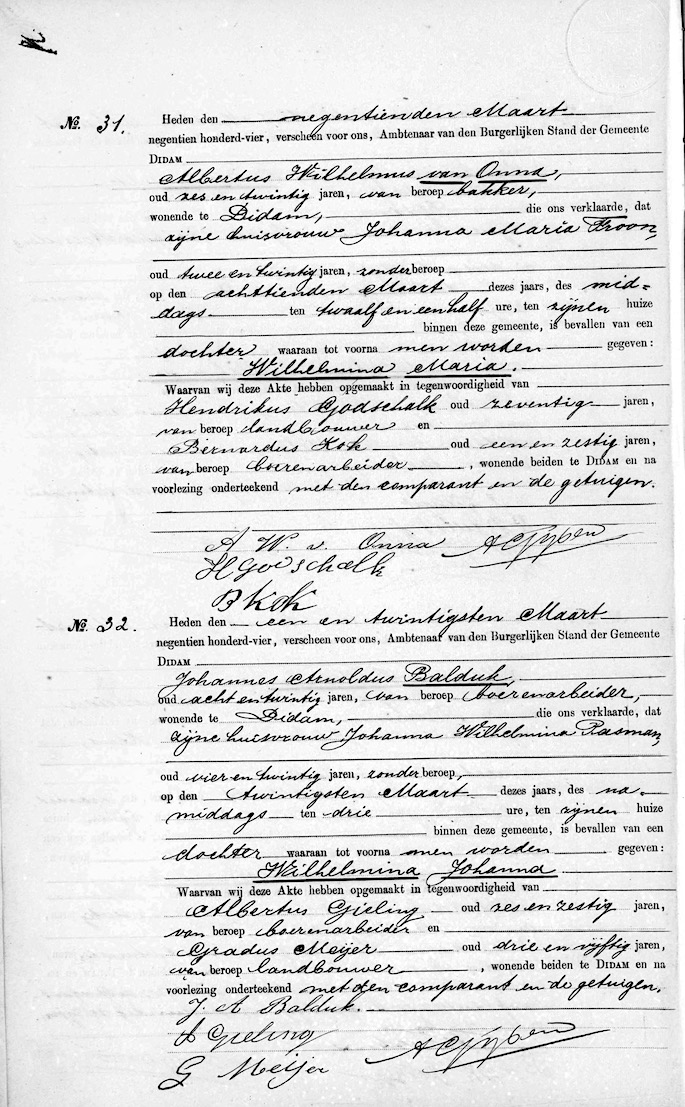 No. 31. Heden den negentienden Maart
negentien honderd-vier, verscheen voor ons, Ambtenaar van den Burgerlijken Stand der Gemeente
DIDAM
Albertus Wilhelmus van Onna,
oud zes en twintig jaren, van beroep bakker,
wonende te Didam, die ons verklaarde, dat
zijne huisvrouw Johanna Maria Troon,
oud twee en twintig jaren, zonder beroep
op den achttienden Maart dezes jaars, des mid=
dags ten twaalf en een half ure, ten zijnen huize
binnen deze gemeente, is bevallen van een
dochter waaraan tot voorna men worden gegeven:
Wilhelmina Maria.
Waarvan wij deze Akte hebben opgemaakt in tegenwoordigheid van
Hendrikus Godschalk oud zeventig jaren,
van beroep landbouwer en
Bernardus Kok oud een en zestig jaren,
van beroep boerenarbeider, wonende beiden te DIDAM en na
voorlezing onderteekend met den comparant en de getuigen.
A W. v. Onna
H Godschalk
B Kok
No. 32. Heden den een en twintigsten Maart
negentien honderd-vier, verscheen voor ons, Ambtenaar van den Burgerlijken Stand der Gemeente
DIDAM
Johannes Arnoldus Balduk,
oud acht en twintig jaren, van beroep boerenarbeider,
wonende te Didam, die ons verklaarde, dat
zijne huisvrouw Johanna Wilhelmina Rasman,
oud vier en twintig jaren, zonder beroep,
op den twintigsten Maart dezes jaars, des na=
middags ten drie ure, ten zijnen huize
binnen deze gemeente, is bevallen van een
dochter waaraan tot voorna men worden gegeven:
Wilhelmina Johanna
Waarvan wij deze Akte hebben opgemaakt in tegenwoordigheid van
Albertus Gieling oud zes en zestig jaren,
van beroep boerenarbeider en
Gradus Meijer oud drie en vijftig jaren,
van beroep landbouwer, wonende beiden te DIDAM en na
voorlezing onderteekend met den comparant en de getuigen.
J. A Balduk.
A Gieling
G Meijer